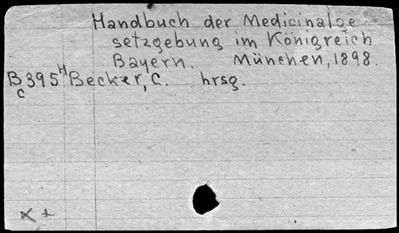 Handbuch der Medicinalge
setzgebung im Königreich
Bayern. München, 1898.
B395H Becker, C. hrsg.
c
x +